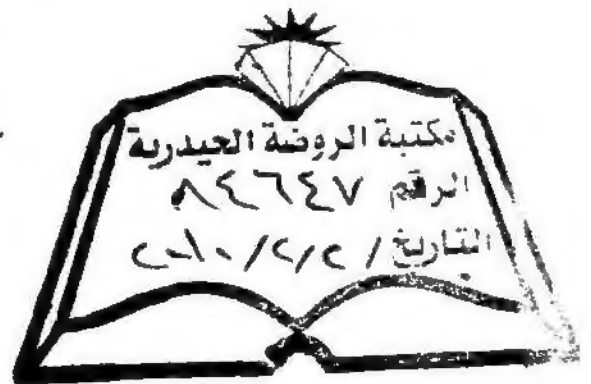 مكتبة الروضة الحيدرية
الرقم ٨٤٦٤٧
التاريخ / ٢/٢/٢٠١٠